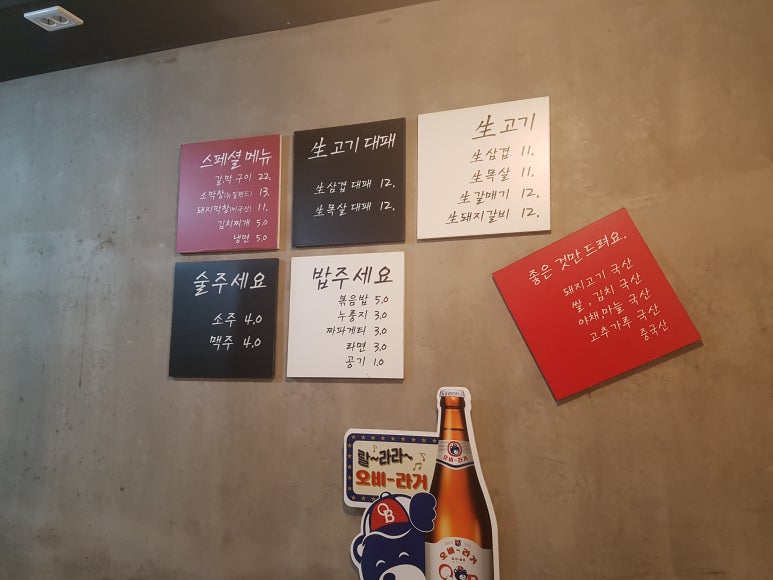 스페셜 메뉴
갈막 구이 22.
소막창(뉴질랜드) 13.
돼지막창(미국산) 11.
김치찌개 5.0
냉면 5.0
生고기 대패
生삼겹 대패 12.
生목살 대패 12.
生고기
生삼겹 11.
生목살 11.
生갈매기 12.
生돼지갈비 12.
술주세요
소주 4.0
맥주 4.0
밥주세요
볶음밥 5.0
누룽지 3.0
짜파게티 3.0
라면 3.0
공기 1.0
좋은 것만 드려요.
돼지고기 국산
쌀, 김치 국산
야채,마늘 국산
고추가루 국산
중국산
랄~라라~
오비-라거
OB
오비-라거